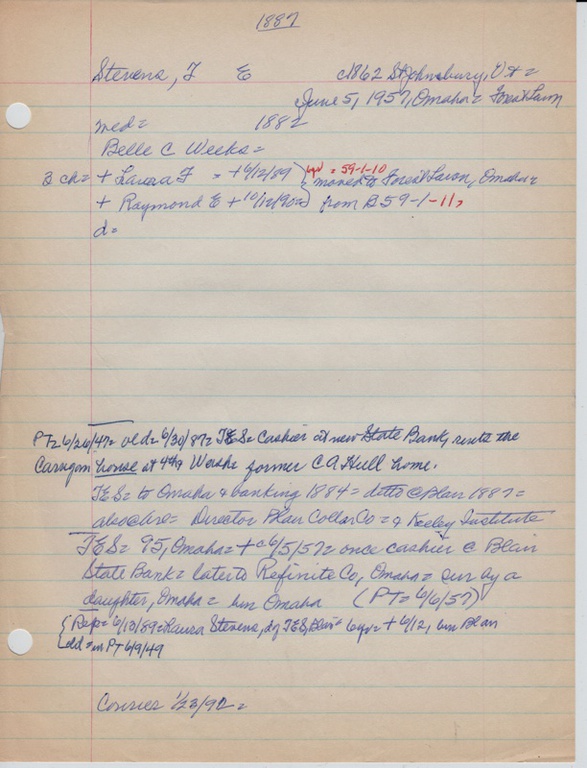 1887
Stevens, T E c1862 St Johnsbury, Vt=
June 5, 1957, Omaha= Forest Lawn
med= 1882
Belle C Weeks=
B ch= + Laura F = +6/12/89 = 59-1-10 moved to Forest Lawn, Omaha=
+ Raymond E +10/12/90= from B 59-1-11,
d=
PT= 6/26/47= old= 6/30/87= TES= Cashier at new State Bank, rents the
house at 4th & Wash= former C A Hull home.
TES= to Omaha & banking 1884= ditto @ Blair 1887=
also Director Blair Collar Co= & Keeley Institute
TES= 95, Omaha= +c6/5/57= once cashier @ Blair
State Bank= later to Refinite Co, Omaha= sur by a
daughter, Omaha= bur Omaha (PT= 6/6/57)
Rep= 6/13/89= Laura Stevens, d of TES, Blair= 6 yr= + 6/12, bur Blair
dd= in PT 6/9/49
Courier 1/23/92=